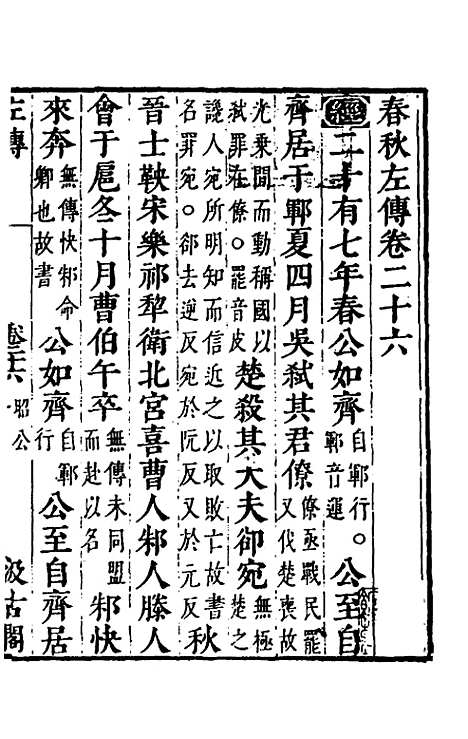 春秋左傳卷二十六
經二十有七年春公如齊自鄆行。鄆音運公至自
齊居于鄆夏四月吳弒其君僚僚亟戰民罷又伐楚喪故
光乗間而動稱國以弒罪在僚。罷音皮楚殺其大夫郤宛無極楚之
讒人宛所明知而信近之以取敗亡故書名罪宛。郤去逆反宛於阮反又於元反秋
晉士鞅宋樂祁犂衛北宮喜曹人邾人滕人
會于扈冬十月曹伯午卒無傳未同盟而赴以名邾快
來奔無傳快邾命卿也故書公如齊自鄆行公至自齊居
左傳 卷二六 昭公 一 汲古閣